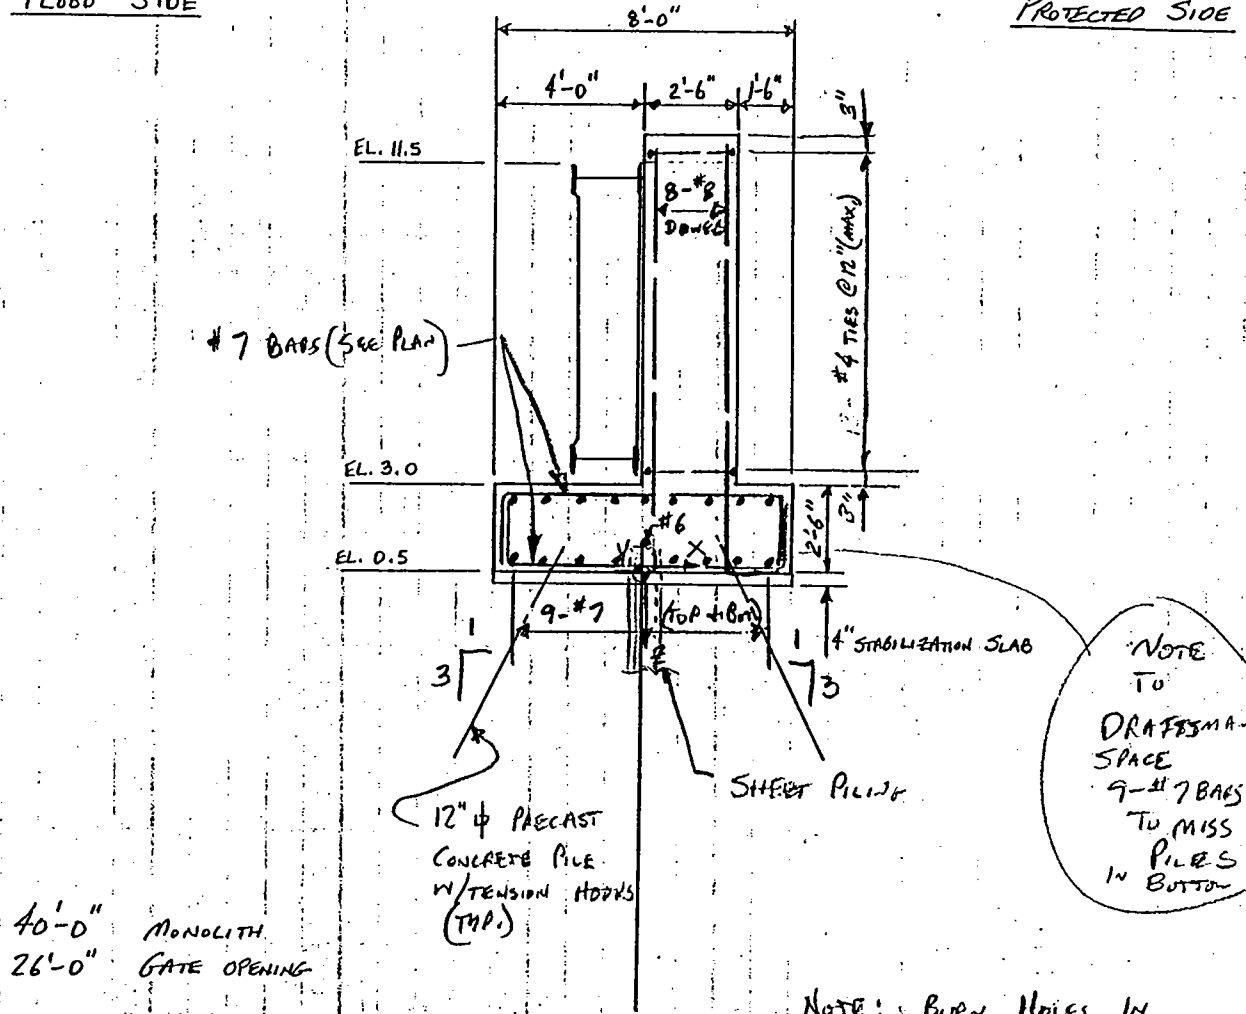 FLOOD SIDE
PROTECTED SIDE
8'-0"
4'-0"
2'-6"
1'-6"
3"
EL. 11.5
8-#8
DOWEL
#4 TIES @ 12" (MAX.)
#7 BARS (SEE PLAN)
EL. 3.0
3"
2'-6"
#6
Y
X
EL. 0.5
9-#7
(TOP & BOT)
4" STABILIZATION SLAB
1
3
1
3
SHEET PILING
12" ϕ PRECAST
CONCRETE PILE
W/TENSION HOOKS
(TYP.)
NOTE
TO
DRAFTSMA
SPACE
9-#7 BARS
TO MISS
PILES
IN BOTTOM
40'-0" MONOLITH
26'-0" GATE OPENING
NOTE: BURN HOLES IN